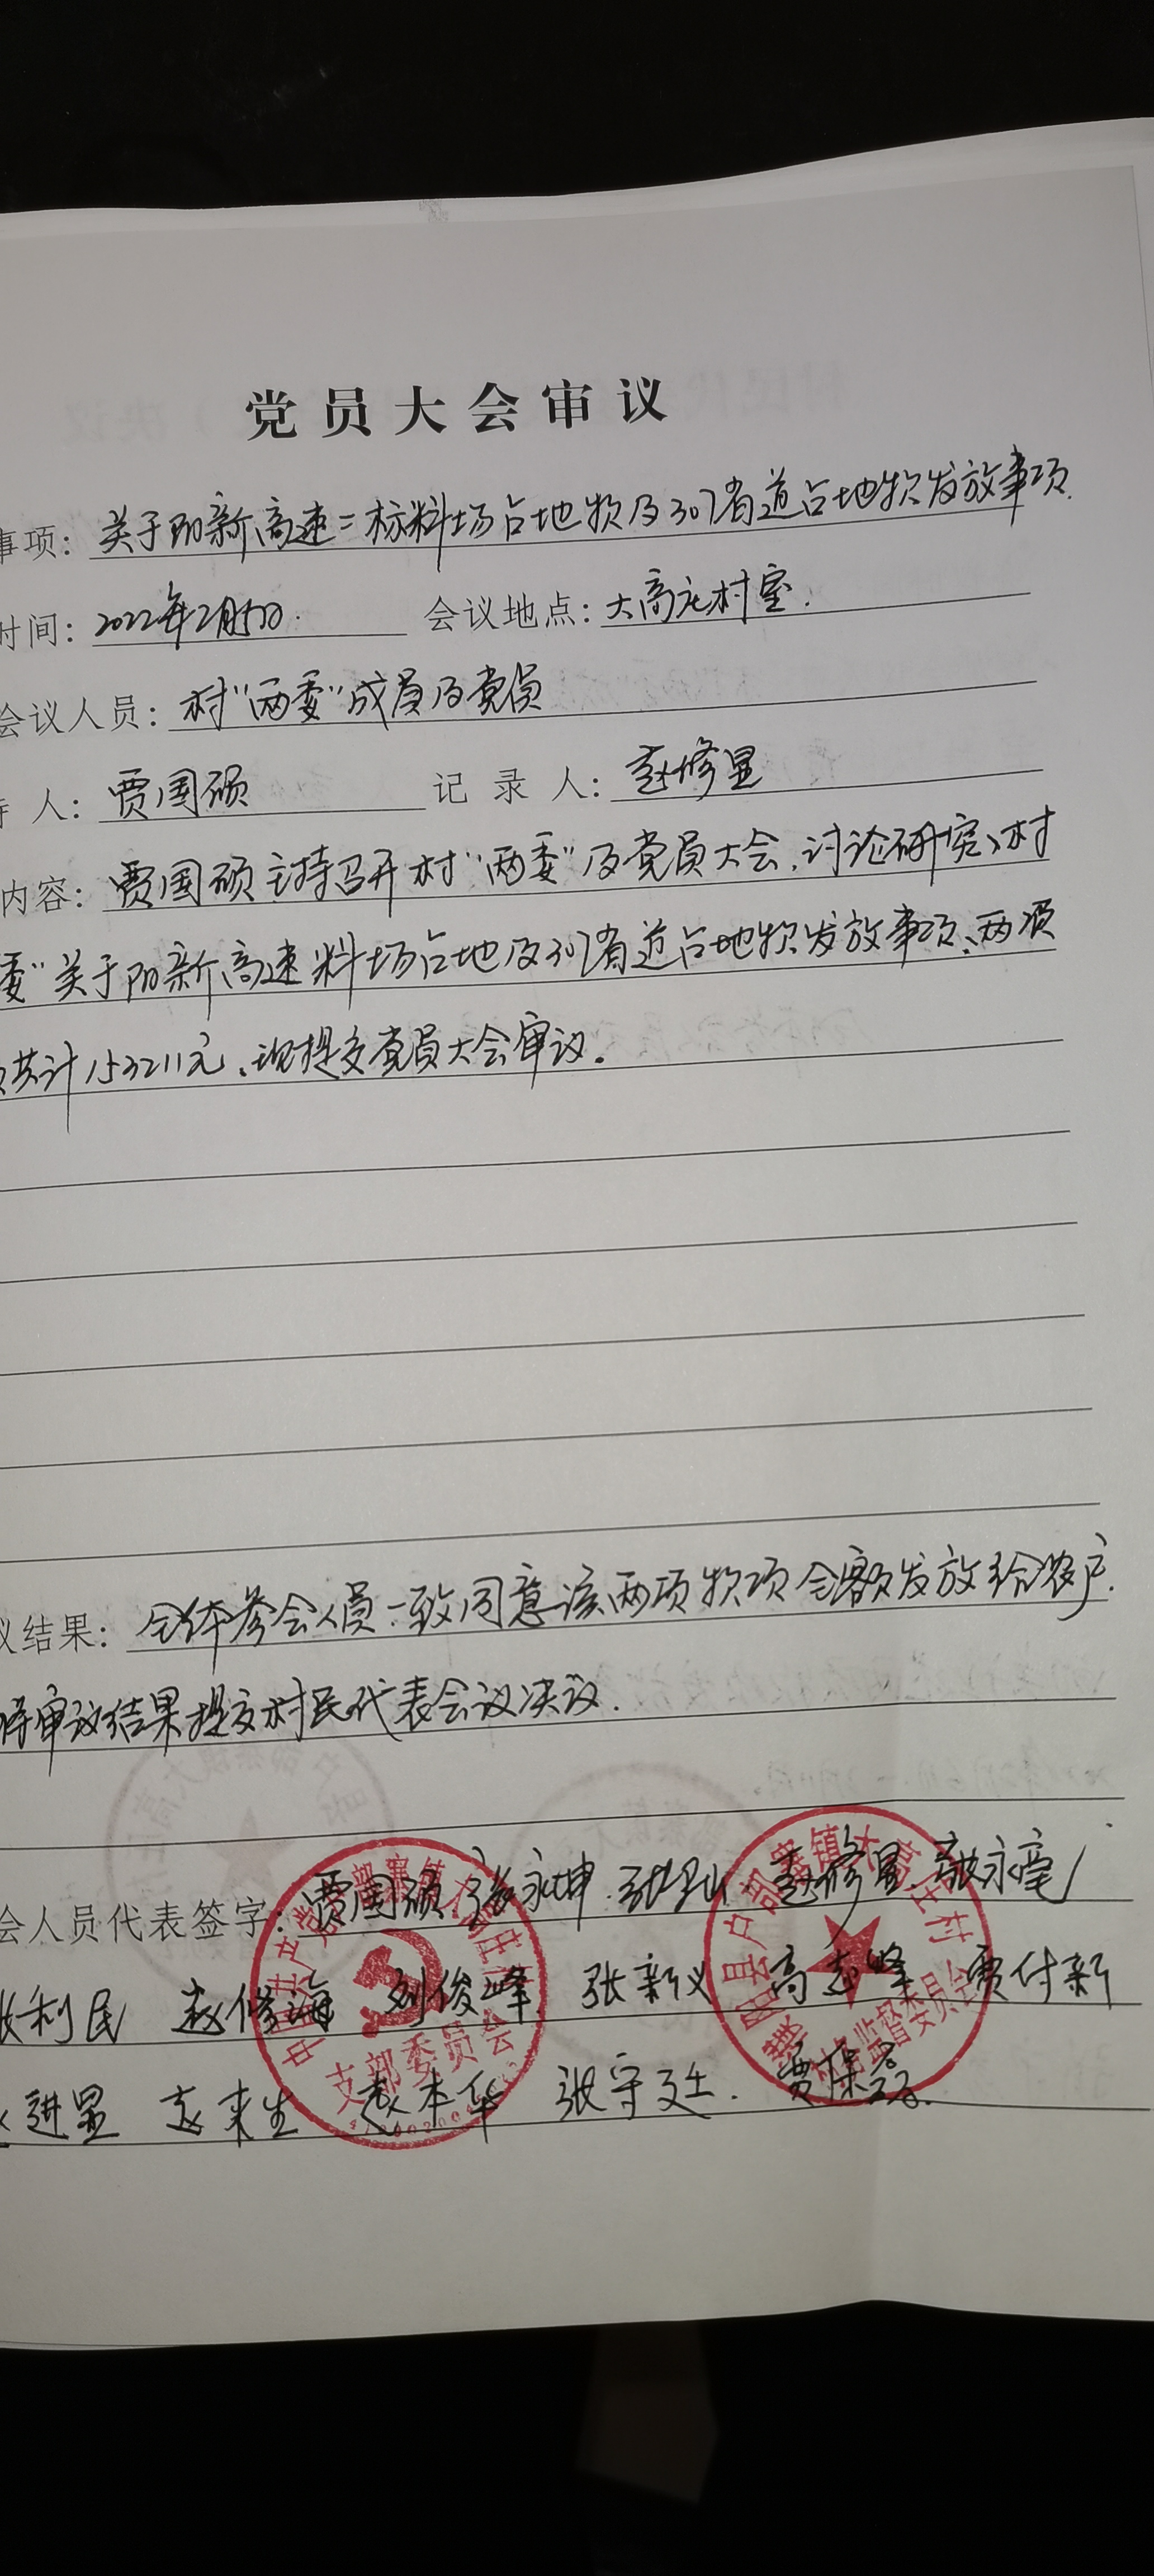 党员大会审议
事项: 关于阳新高速二标料场占地款及307省道占地款发放事项.
时间: 2022年2月5日. 会议地点: 大高庄村室.
会议人员: 村“两委”成员及党员
持 人: 贾国硕 记 录 人: 赵修显
内容: 贾国硕主持召开村“两委”及党员大会,讨论研究、村
委”关于阳新高速料场占地及307省道占地款发放事项、两项
共计153211元、现提交党员大会审议.
议结果: 全体参会人员一致同意该两项款项全额发放给农户.
将审议结果提交村民代表会议决议.
会人员代表签字: 贾国硕 张永坤. 赵修显 永亳
张利民 赵修海 刘俊峰 张新义 高志峰 贾付新
进显 赵来生 赵本华 张守廷. 贾保磊.
支部委员会